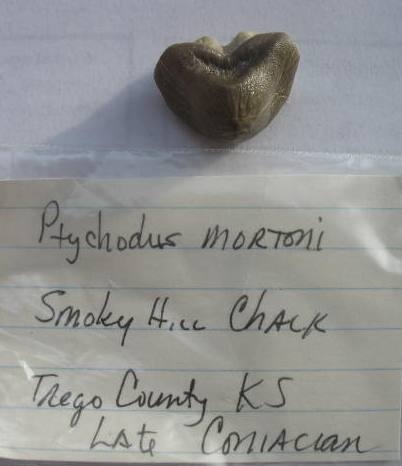 Ptychodus MORTONI
Smoky Hill Chalk
Trego County KS
Late Coniacian